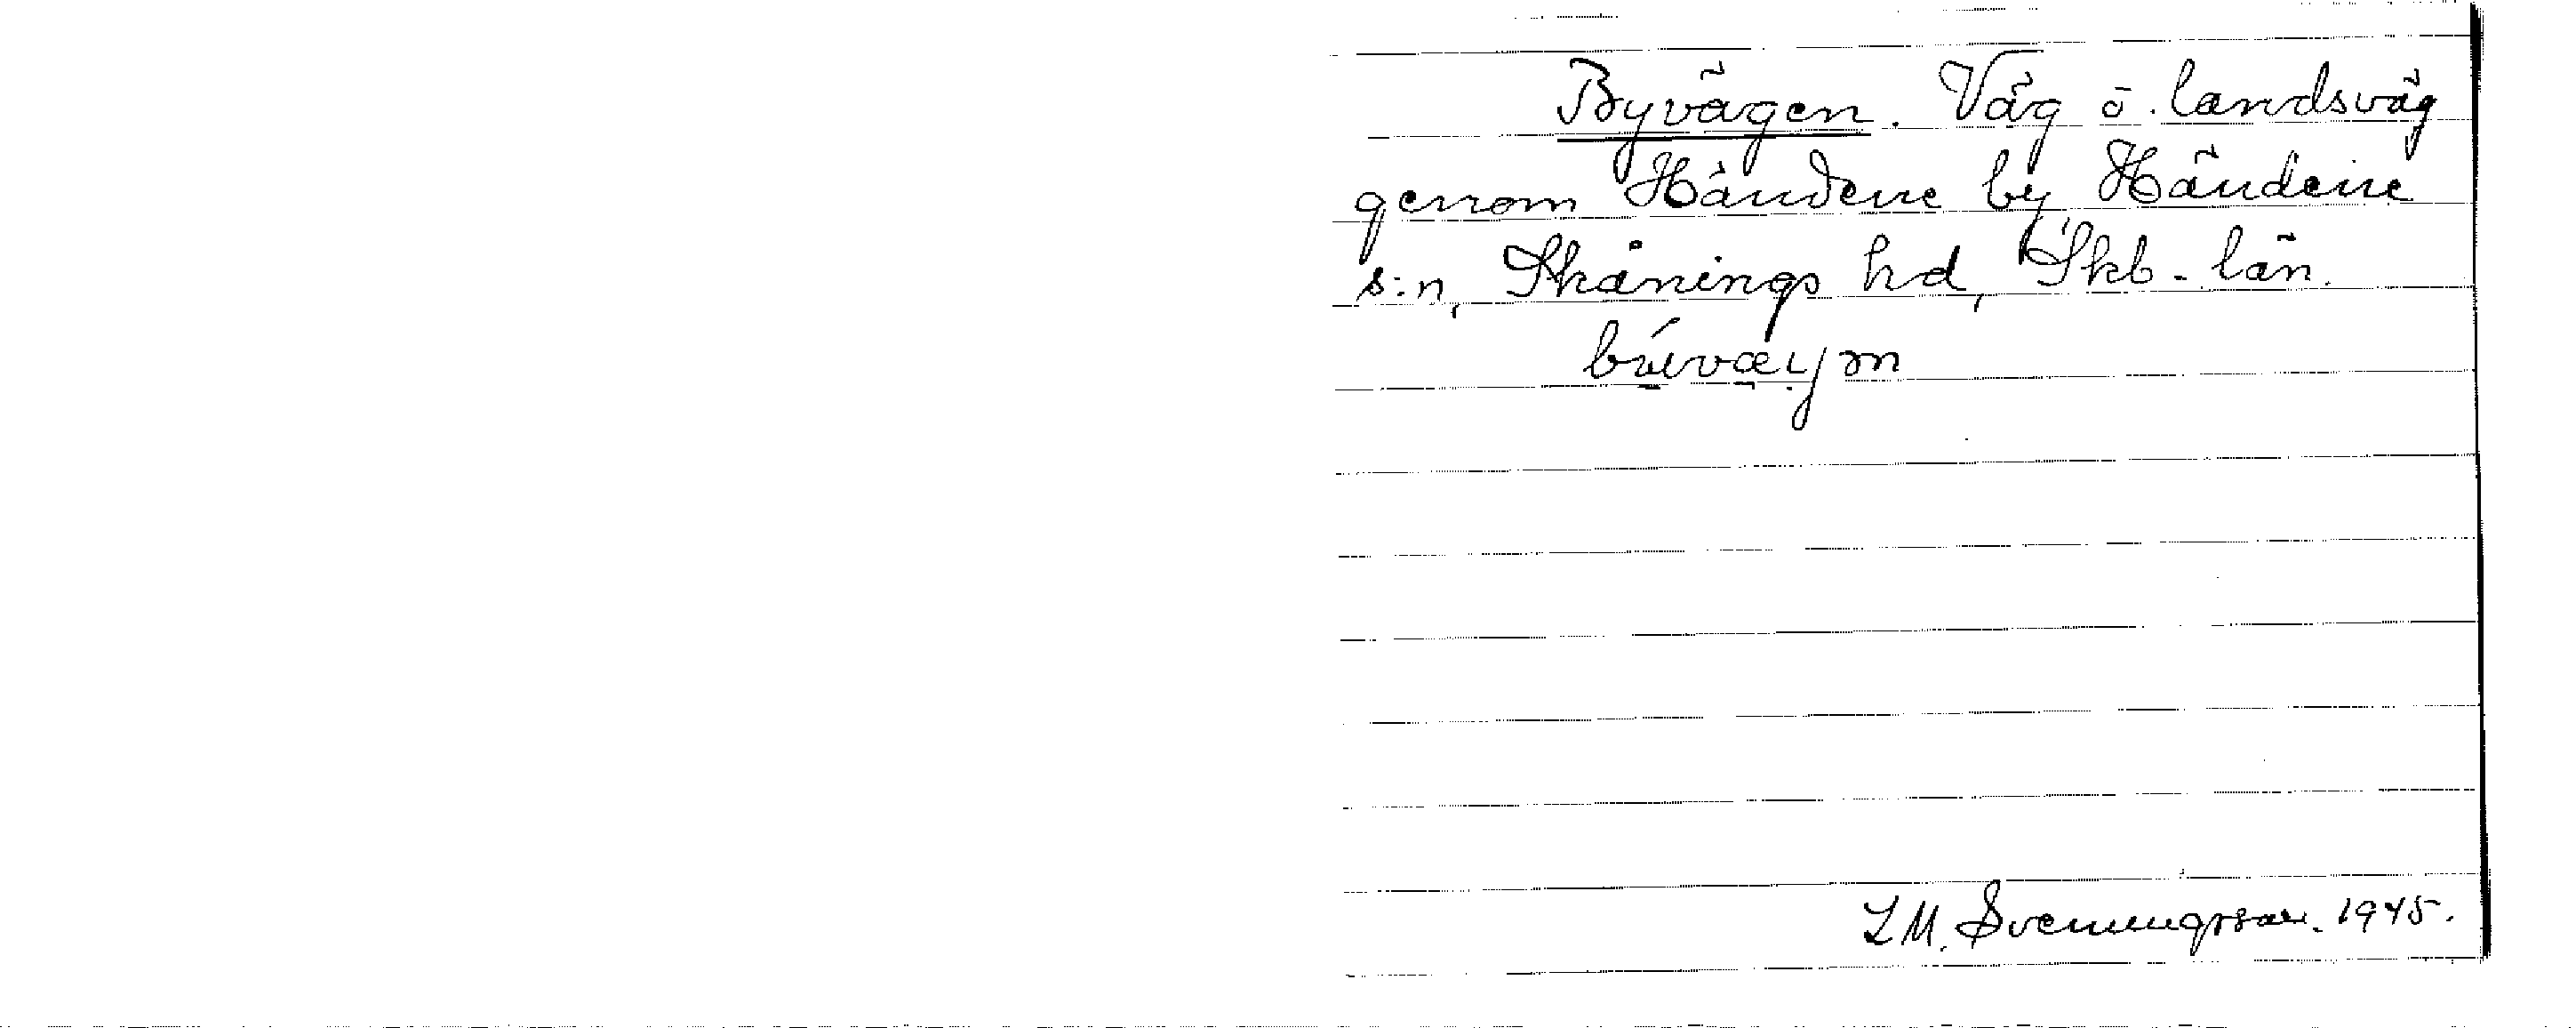 Byvägen. Väg ö. landsväg
genom Händene by Händene
s:n, Skånings hd, Skb-län.
L M. Svenungsson. 1945.